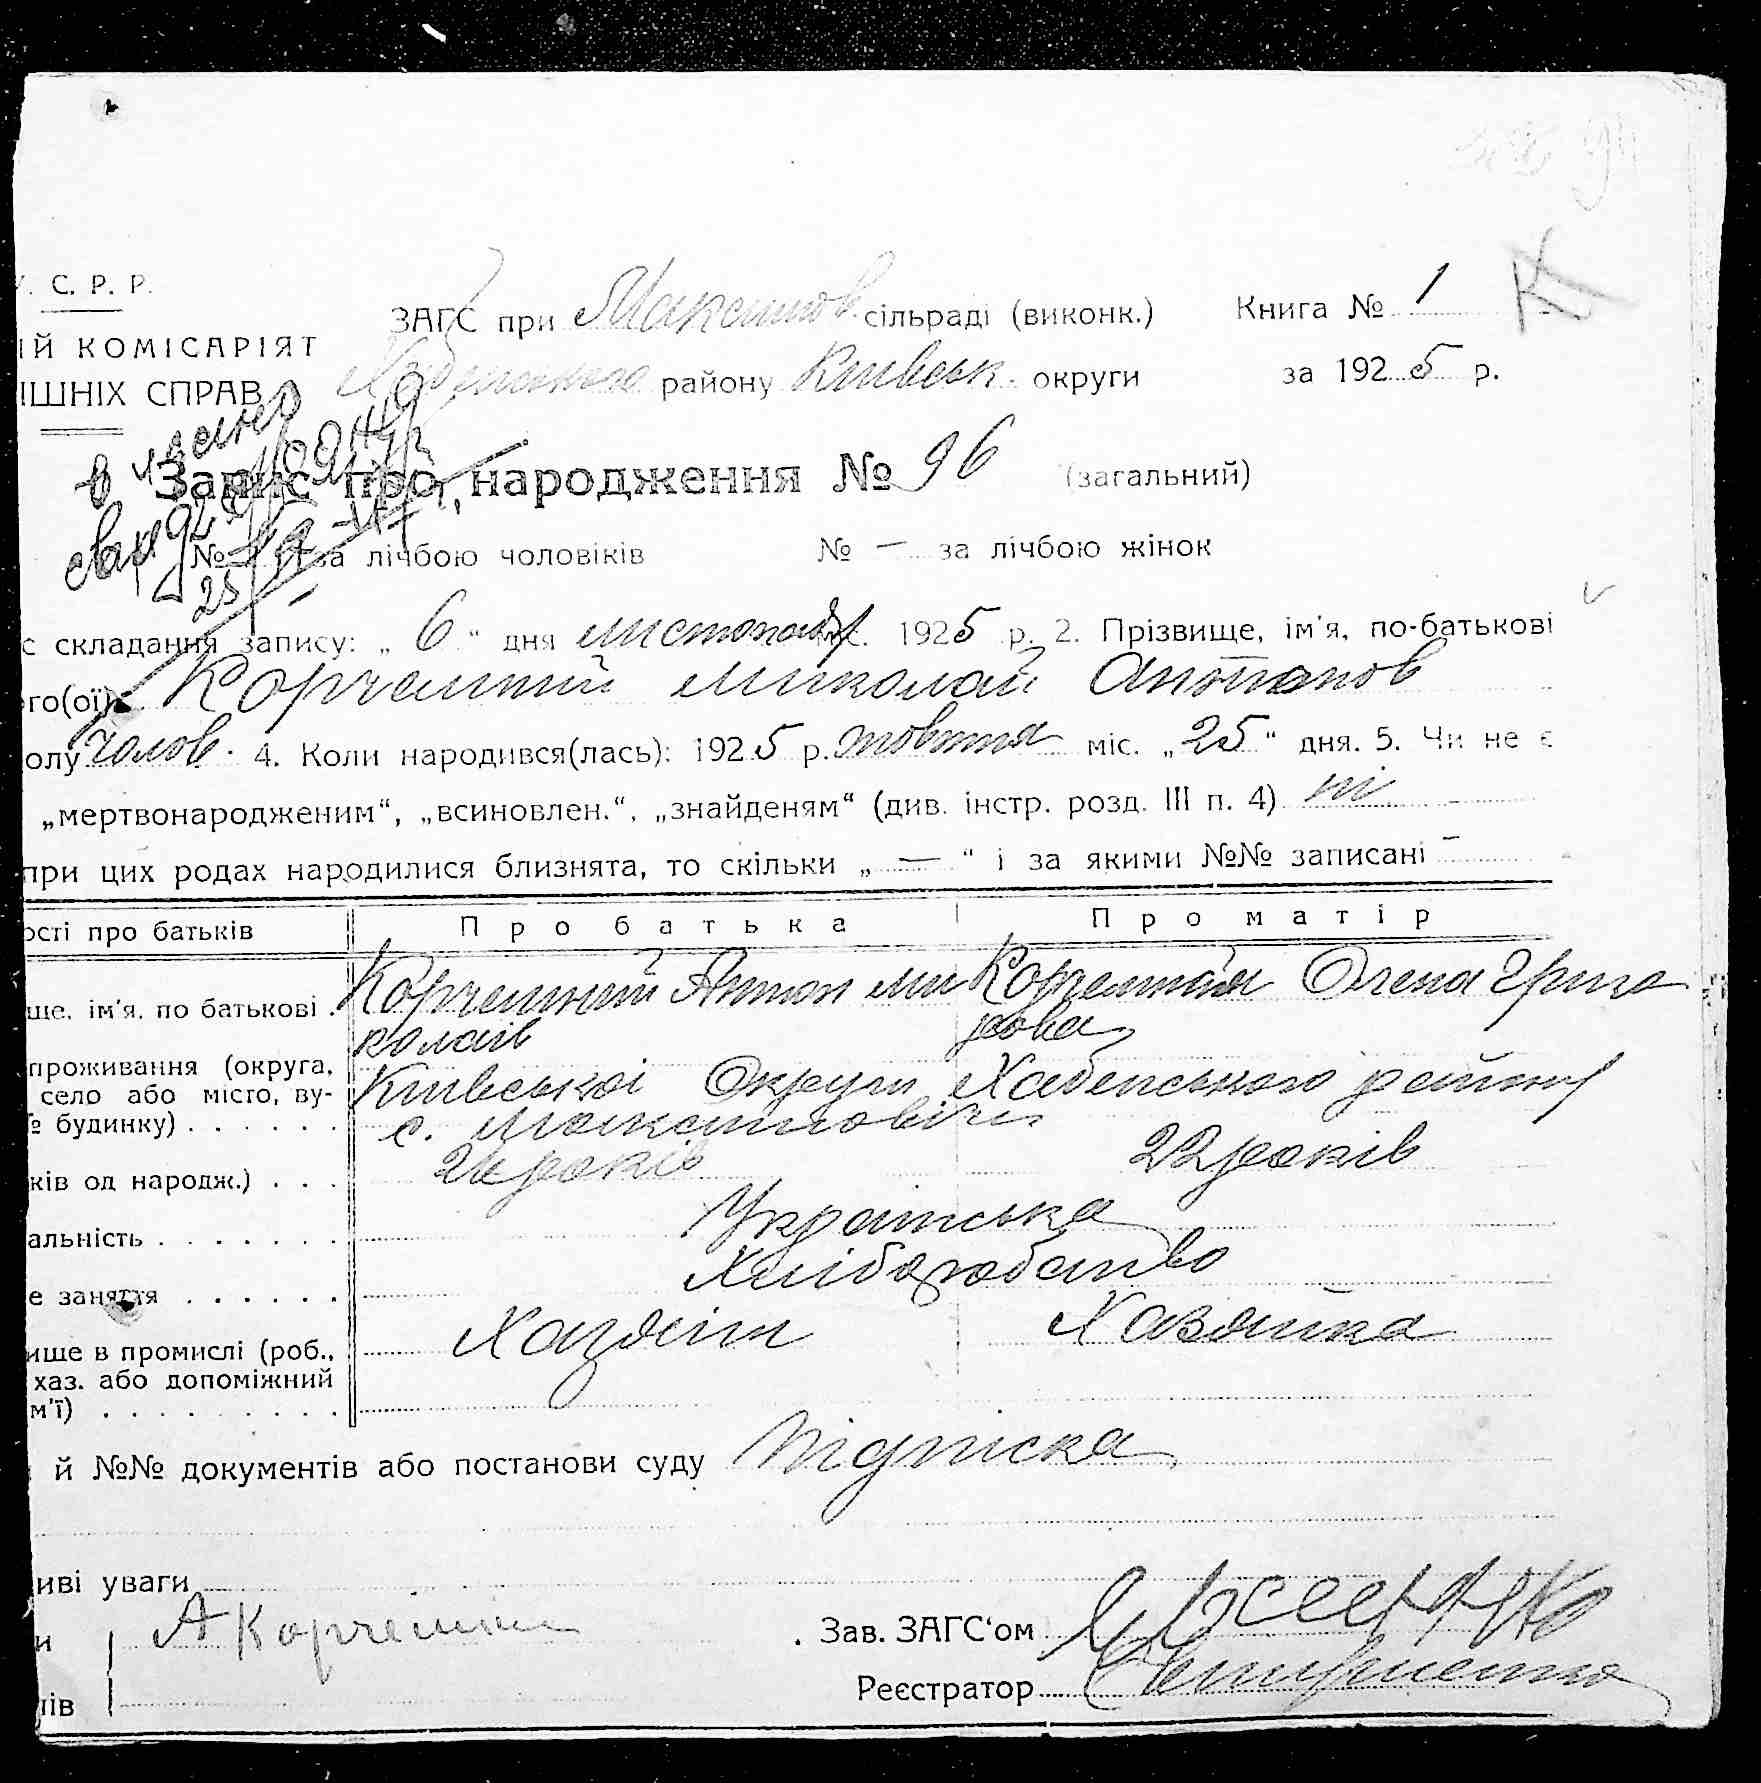 У. С. Р. Р.
ІЙ КОМІСАРІЯТ
ІШНІХ СПРАВ
ЗАГС при Максимов. сільраді (виконк.)
Книга № 1
К
Хабенського району Київськ. округи
за 1925 р.
Запис про народження № 96 (загальний)
№ за лічбою чоловіків
№ — за лічбою жінок
с складання запису: „ 6 “ дня листопада міс. 1925 р. 2. Прізвище, ім'я, по-батькові
го(ої) Корчемний Миколай Антонов
олу чолов. 4. Коли народився(лась): 1925 р. жовтня міс. „25“ дня. 5. Чи не є
„мертвонародженим“, „всиновлен.“, „знайденям“ (див. інстр. розд. III п. 4) ні
при цих родах народилися близнята, то скільки „ — “ і за якими №№ записані —
ості про батьків
Про батька
Про матір
ще, ім'я, по батькові . Корчемний Антон Ми Корчемная Олена Григо
колаїв рова
проживання (округа, Київської Округи Хабенського району
село або місто, ву-
№ будинку) . . . . . . с. Максимовичи
ків од народж.) . . . років 22 років
альність . . . . . . . Українська
е заняття . . . . . . Хліборобство
ище в промислі (роб., Хазяїн Хазяйка
хаз. або допоміжний
м'ї) . . . . . . . . .
й №№ документів або постанови суду Підписка
иві уваги
и А Корчемний
Зав. ЗАГС'ом
Реєстратор
ків